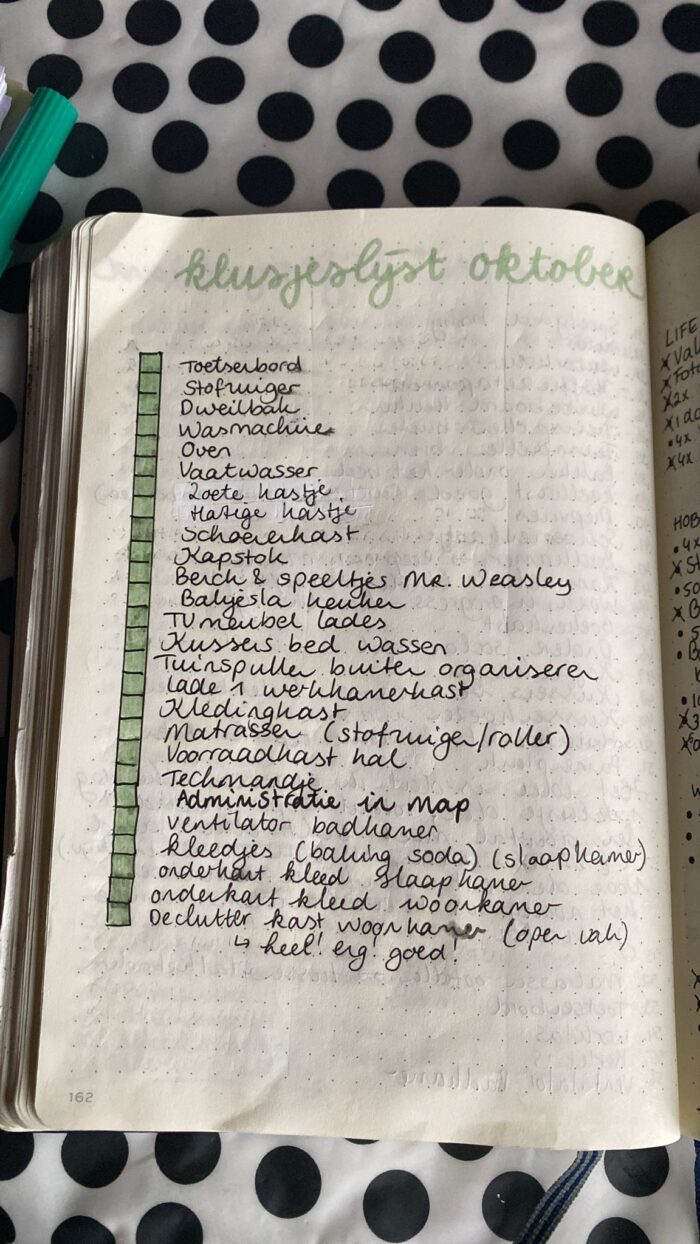 klusjeslijst oktober
Toetsenbord
Stofzuiger
Dweilbak
Wasmachine
Oven
Vaatwasser
Zoete kastje
Hartige kastje
Schoenenkast
Kapstok
Bench & speeltjes Mr. Weasley
Baljesla keuken
TV meubel lades
Kussens bed wassen
Tuinspullen buiten organiseren
lade 1 werkkamerkast
Kledingkast
Matrassen (stofzuiger/roller)
Voorraadkast hal
Techmandje
Administratie in map
ventilator badkamer
kleedjes (baking soda) (slaapkamer)
onderkant kleed slaapkamer
onderkant kleed woonkamer
Declutter kast woonkamer (open vak)
↳ heel! erg goed!
162
LIFE
Val
Foto
2x
1 da
4x
4x
HOB
4x
St
50
B
5